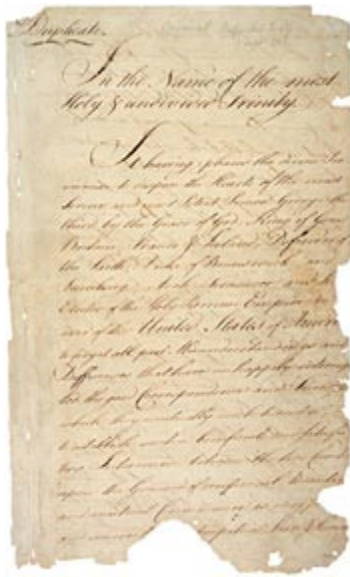 Duplicate.
In the Name of the most
Holy & undivided Trinity.
It having pleased the divine Pro
vidence to dispose the Hearts of the most
Serene and most Potent Prince George the
third by the Grace of God, King of Great
Britain, France & Ireland, Defender of
the Faith, Duke of Brunswick and
Luneburg, Arch Treasurer and
Elector of the Holy Roman Empire
and of the United States of America
to forget all past Misunderstandings and
Differences that have unhappily
the good Correspondence and
which they mutually wish to
to establish such a beneficial and
Intercourse between the two
upon the Ground of reciprocal
and mutual Convenience as may
and secure